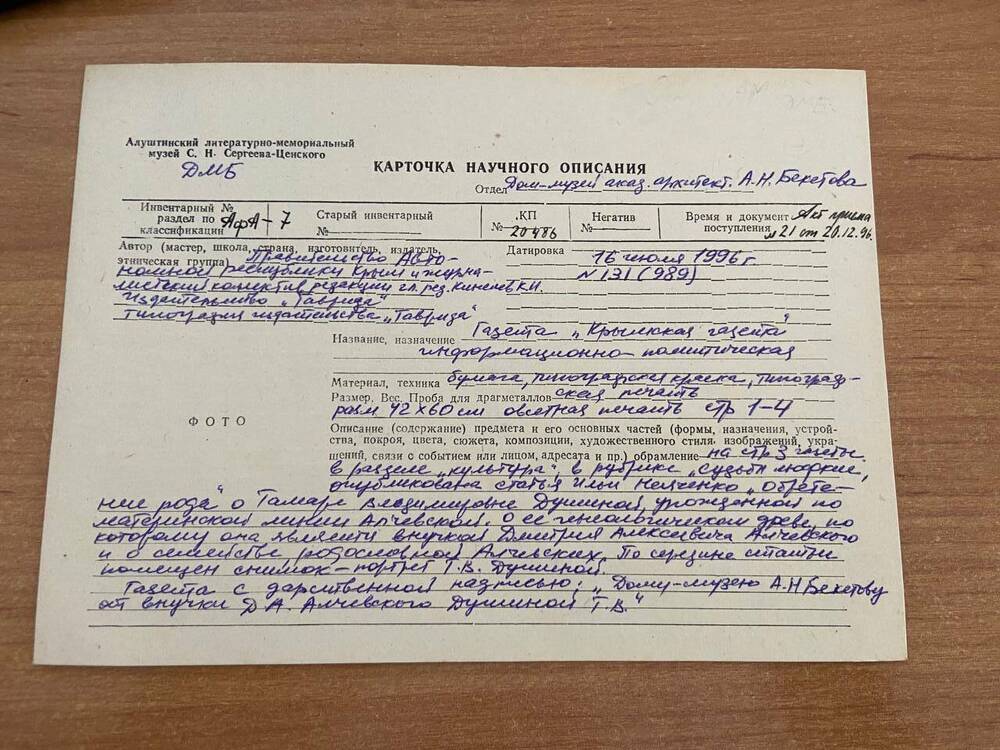 Алуштинский литературно-мемориальный
музей С. Н. Сергеева-Ценского
ДМБ
КАРТОЧКА НАУЧНОГО ОПИСАНИЯ
Отдел Дом-музей акад. архитект. А.Н. Бекетова
Инвентарный №
раздел по
классификации АфА-7
Старый инвентарный
№
КП
№ 20486
Негатив
№
Время и документ Акт приема
поступления №21 от 20.12.96.
Автор (мастер, школа, страна, изготовитель, издатель,
этническая группа) Правительство Авто-
номной республики Крым и журна-
листский колектив редакции гл. ред.
Издательство „Таврида"
типография издательства „Таврида"
Датировка 16 июля 1996 г
N 131 (989)
Название, назначение Газета „Крымская газета"
информационно-политическая
Материал, техника бумага, типографская краска, типограф-
Размер. Вес. Проба для драгметаллов ская печать
разм 42×60 см офсетная печать стр 1-4
ФОТО
Описание (содержание) предмета и его основных частей (формы, назначения, устрой-
ства, покроя, цвета, сюжета, композиции, художественного стиля, изображений, укра-
шений, связи с событием или лицом, адресата и пр.) обрамление на стр 3 газеты
в разделе „культура", в рубрике „судьбы людские,
опубликована статья Ильи „Обрете-
ние рода" о Тамаре Владимировне Душиной, урожденной по
материнской линии Алчевской. О ее генеологическом древе, по
которому она является внучкой Дмитрия Алексеевича Алчевского
и о семействе родословной Алчевских. По середине статьи
помещен снимок-портрет Т.В. Душиной.
Газета с дарственной надписью: „Дому-музею А.Н Бекетову
от внучки Д.А. Алчевского Душиной Т.В."